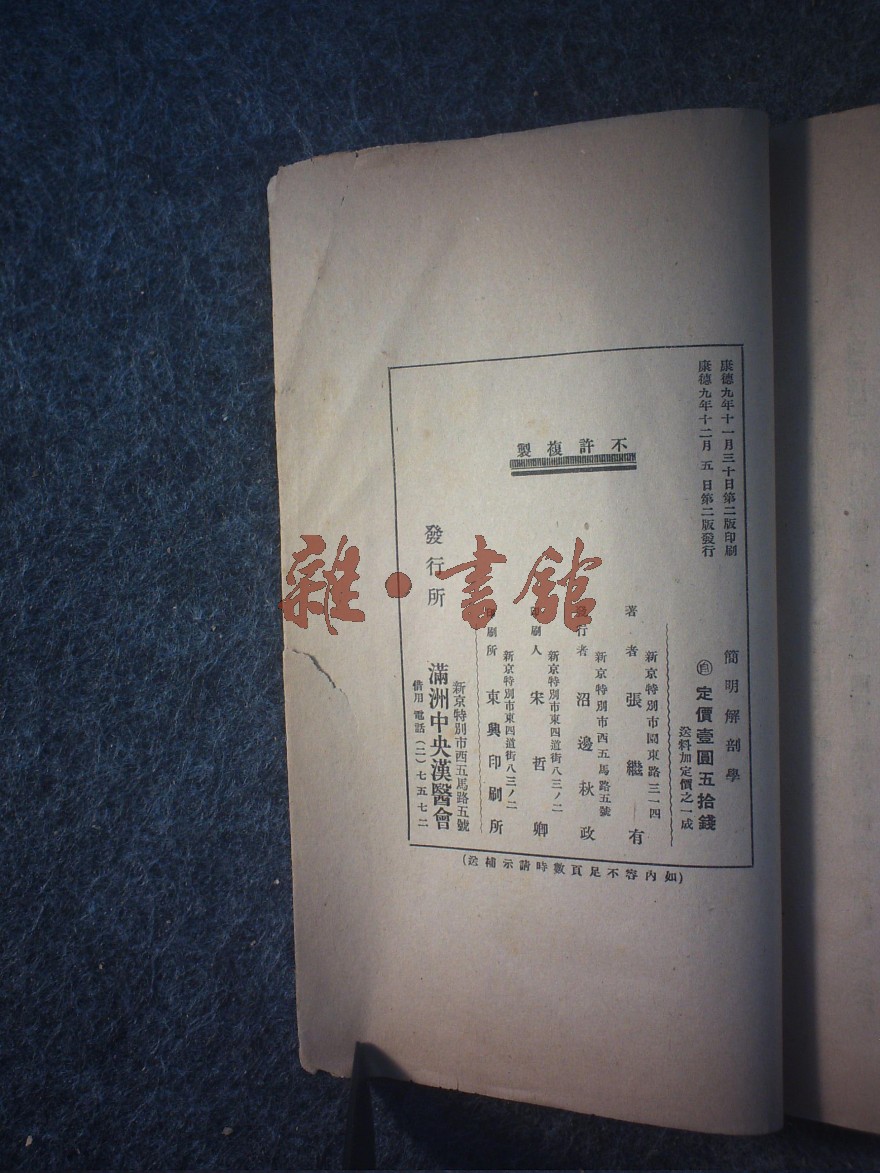 康德九年十一月三十日第二版印刷
康德九年十二月五日第二版發行
簡明解剖學
自 定價壹圓五拾錢
送料加定價之一成
不許複製
新京特別市關東路三一四
著者 張繼有
新京特別市西五馬路五號
發行者 沼邊秋政
新京特別市東四道街八三ノ二
印刷人 宋哲卿
新京特別市東四道街八三ノ二
印刷所 東興印刷所
新京特別市西五馬路五號
發行所 滿洲中央漢醫會
借用電話(二)七五七二
(如內容不足頁數時請示補送)
雜·書館